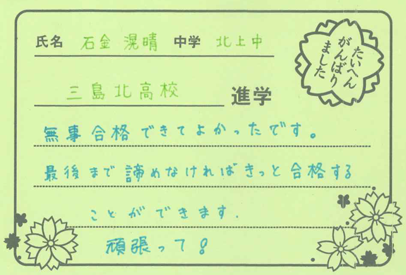 氏名 石金 滉晴 中学 北上中
たいへん
がんばり
ました
三島北高校 進学
無事合格できてよかったです。
最後まで諦めなければきっと合格する
ことができます.
頑張って!